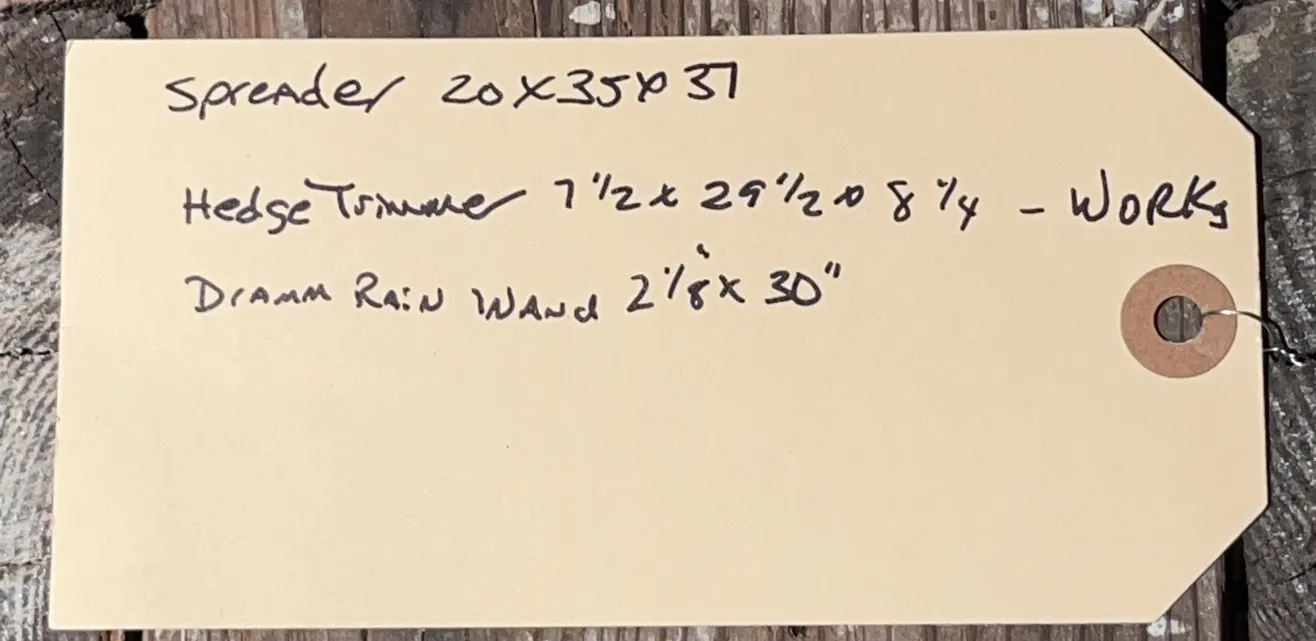 Spreader 20x35x37
Hedge Trimmer 7 1/2 x 29 1/2 x 8 1/4 - Works
Dramm Rain Wand 2 1/8" x 30"